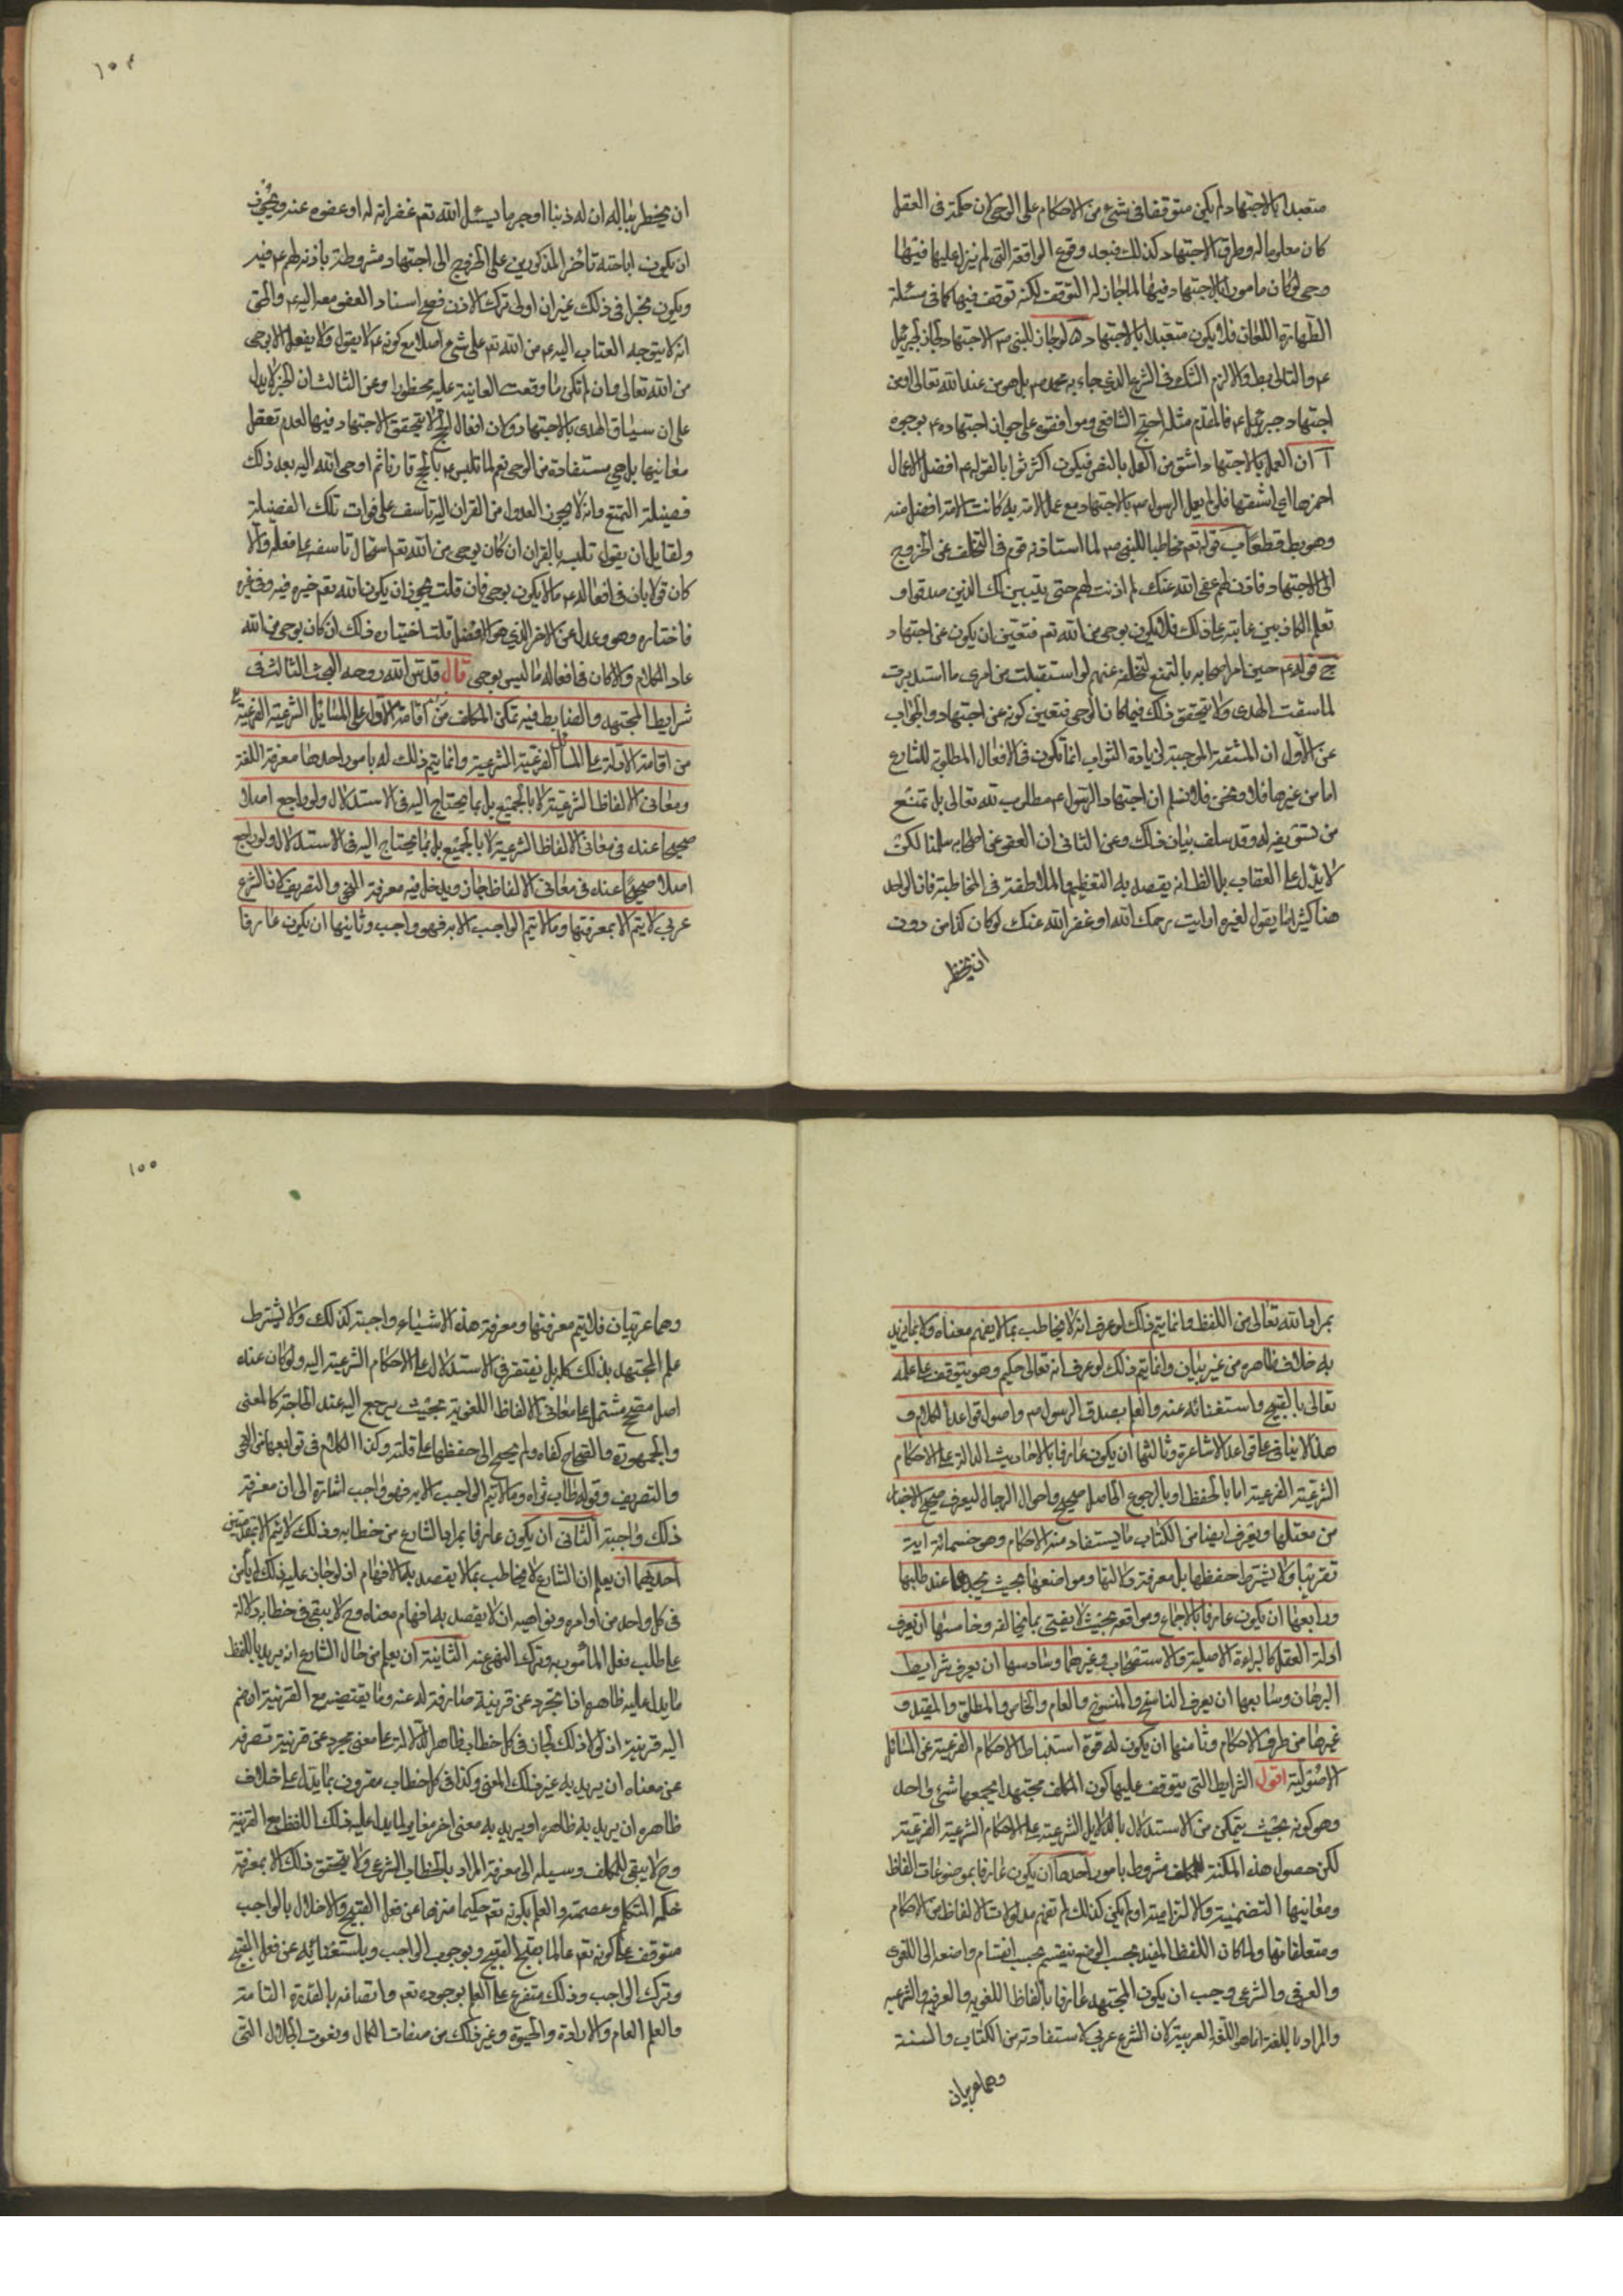 متعبدا بالاجتهاد لم يكن متوقفا فى شىء من الاحكام على الوحى لان حكمه فى العقل
كان معلوما له وطرق الاجتهاد كذلك فبعد وقوع الواقعة التى لم ينزل عليها فيها
وحى لو كان مامورا بالاجتهاد فيها لما جاز له التوقف لكنه توقف فيها كما فى مسئلة
الظهار واللعان فلا يكون متعبدا بالاجتهاد ه لو جاز للنبى ص الاجتهاد لجاز لجبرئيل
ع والتالى بط والا لزم الشك فى الشرع الذى جاء به محمد ص بل هو من عند الله تعالى او من
اجتهاد جبرئيل ع فالمقدم مثله احتج الشافعى وموافقوه على جواز اجتهاده ع بوجوه
آ ان العمل بالاجتهاد اشق من العمل بالنص فيكون اكثر ثوابا لقوله ع افضل الاعمال
احمزها اى اشقها فلو لم يعمل الرسول ص بالاجتهاد مع عمل الامة به كانت الامة افضل منه
وهو بط قطعا ب قوله تعم مخاطبا للنبى ص لما استاذنه قوم فى التخلف عن الخروج
الى الاجتهاد فاذن لهم عفى الله عنك لم اذنت لهم حتى يتبين لك الذين صدقوا و
تعلم الكاذبين عاتبه على ذلك فلا يكون بوحى من الله تعم فتعين ان يكون عن اجتهاد
ج قوله ع حين امر اصحابه بالتمتع لتخلفه عنهم لو استقبلت من امرى ما استدبرت
لما سقت الهدى ولا يتحقق ذلك فيما كان الوحى فتعين كونه عن اجتهاد والجواب
عن الاول ان المشقة الموجبة لزيادة الثواب انما تكون فى الافعال المطلوبة للشارع
اما من غيرها فلا ونحن فلا نسلم ان اجتهاد الرسول ع مطلوب لله تعالى بل تمتنع
من تسويغه له وقد سلف بيان ذلك وعن الثانى ان العفو عن اصحابه سلمنا لكن
لا يدل على العقاب بل الظ انه يقصد به التعظيم والملاطفة فى المخاطبة فان الواحد
منا كثيرا ما يقول لغيره ارايت رحمك الله او غفر الله عنك لو كان كذا من دون
ان يخطر
١٥٤
ان يخطر بباله ان له ذنبا اوجر ما يسئل الله تعم غفرانه له او عفوه عنه ويجوز
ان يكون اباحته تاخر المذكورين على الخروج الى اجتهاد مشروطة باذنه لهم ع فيه
ويكون مخيرا فى ذلك غير ان اولى ترك الاذن فصح اسناد العفو معه اليه ع والحق
انه لا يتوجه العتاب اليه ع من الله تعم على شىء اصلا مع كونه ع لا يقول ولا يفعل الا بوحى
من الله تعالى وان لم تكن ما وقعت المعاتبة عليه محظورا وعن الثالث ان الخبر لا يدل
على ان سياق الهدى بالاجتهاد ولان افعال الحج لا يتحقق الاجتهاد فيها لعدم تعقل
معانيها بل هى مستفادة من الوحى نعم لما تلبس ص بالحج قارنا ثم اوحى الله اليه بعد ذلك
فضيلة التمتع وانه لا يجوز العدول من القران اليه تاسف على فوات تلك الفضيلة
ولقايل ان يقول تلبسه بالقران ان كان بوحى من الله تعم استحال تاسفه على فعله والا
كان قولا بان فى افعاله ع ما لا يكون بوحى فان قلت يجوز ان يكون الله تعم خيره فيه وفى غيره
فاختاره وهو وعدل عن الاخر الذى هو الافضل قلت اختياره ذلك ان كان بوحى من الله
عاد الكلام والا كان فى افعاله ما ليس بوحى قال قدس الله روحه البحث الثالث فى
شرايط المجتهد والضابط فيه تمكن المكلف من اقامة الادلة على المسائل الشرعية الفرعية
من اقامة الادلة على المسائل الفرعية الشرعية وانما يتم ذلك له بامور احدها معرفة اللغة
ومعانى الالفاظ الشرعية لا بالجميع بل بما يحتاج اليه فى الاستدلال ولو راجع اصلا
صحيحا عنده فى معانى الالفاظ الشرعية لا بالجميع بل بما يحتاج اليه فى الاستدلال ولو راجع
اصلا صحيحا عنده فى معانى الالفاظ جاز ويدخل فيه معرفة النحو والتصريف لان الشرع
عربى لا يتم الا بمعرفتها وما لا يتم الواجب الا به فهو واجب وثانيها ان يكون عارفا
بمراد الله تعالى من اللفظ وانما يتم ذلك لو عرف انه لا يخاطب بما لا يفهم معناه ولا بما يريد
به خلاف ظاهره من غير بيان وانما يتم ذلك لو عرف انه تعالى حكيم وهو يتوقف على علمه
تعالى بالقبيح واستغنائه عنه والعلم بصدق الرسول ص واصول قواعد الكلام و
هذا لا يتاتى على قواعد الاشاعرة وثالثها ان يكون عارفا بالاحاديث الدالة على الاحكام
الشرعية الفرعية اما بالحفظ او بالرجوع الى اصل صحيح واحوال الرجال ليعرف صحيح الاخبار
من معتلها ويعرف ايضا من الكتاب ما يستفاد منه الاحكام وهو خمسمائة اية
تقريبا ولا يشترط حفظها بل معرفة دلالتها ومواضعها بحيث يجدها عند طلبها
ورابعها ان يكون عارفا بالاجماع ومواقعه بحيث لا يفتى بما يخالفه وخامسها ان يعرف
ادلة العقل كالبراءة الاصلية والاستصحاب وغيرهما وسادسها ان يعرف شرايط
البرهان وسابعها ان يعرف الناسخ والمنسوخ والعام والخاص والمطلق والمقيد و
غيرها من طرق الاحكام وثامنها ان يكون له قوة استنباط الاحكام الفرعية عن المسائل
الاصولية اقول الشرايط التى يتوقف عليها كون المكلف مجتهدا يجمعها شىء واحد
وهو كونه بحيث يتمكن من الاستدلال بالدلايل الشرعية على الاحكام الشرعية الفرعية
لكن حصول هذه المكنة للمكلف مشروط بامور احدها ان يكون عارفا بموضوعات الفاظ
ومعانيها التضمنية والالتزامية اذ لو لم يكن كذلك لم تفهم مدلولات الالفاظ من الاحكام
ومتعلقاتها ولما كان اللفظ المفيد بحسب الوضع ينقسم بحسب انقسام واضعه الى اللغوى
والعرفى والشرعى وجب ان يكون المجتهد عارفا بالفاظ اللغويه والعرفيه والشرعيه
والمراد باللغة انما هو اللغة العربية لان الشرع عربى لاستفادته من الكتاب والسنة
وهما عربيان
١٥٥
وهما عربيان فلا يتم معرفتها ومعرفة هذه الاشياء واجبة كذلك ولا يشترط
علم المجتهد بذلك كله بل يفتقر فى الاستدلال على الاحكام الشرعية اليه ولو كان عنده
اصل مصحح مشتمل على معانى الالفاظ اللغوية بحيث يرجع اليه عند الحاجة كالمعنى
والجمهرة والصحاح كفاه ولم يحتج الى حفظها على قلته وكذا الكلام فى توابعها من النحو
والتصريف وقوله طاب ثراه وما لا يتم الواجب الا به فهو واجب اشارة الى ان معرفة
ذلك واجبة الثانى ان يكون عارفا بمراد الشارع من خطابه وذلك لا يتم الا بمقدمتين
احديهما ان يعلم ان الشارع لا يخاطب بما لا يقصد به الافهام اذ لو جاز عليه ذلك لم يأمن
فى كل واحد من اوامره ونواهيه ان لا يقصد به افهام معناه وح لا يبقى فى خطابه دلالة
على طلب فعل المأمور به وترك المنهى عنه الثانية ان يعلم من حال الشارع انه يريد باللفظ
ما يدل عليه ظاهره اذا تجرد عن قرينة صارفة له عنه وما يقتضيه مع القرينة ان ضم
اليه قرينة اذ لولا ذلك لجاز فى كل خطاب ظاهر الدلالة على معنى مجرد عن قرينة تصرفه
عن معناه ان يريد به غير ذلك المعنى وكذا فى كل خطاب مقرون بما يدل على خلاف
ظاهره ان يريد به ظاهره او يريد به معنى اخر مغاير لما يدل عليه ذلك اللفظ مع القرينة
وح لا يبقى للمكلف وسيلة الى معرفة المراد بالخطاب الشرعى ولا يتحقق ذلك الا بمعرفة
حكمة المتكلم وعصمته والعلم بكونه تعم حكيما منزها عن فعل القبيح والاخلال بالواجب
متوقف على كونه تعم عالما بقبح القبيح وبوجوب الواجب وباستغنائه عن فعل القبيح
وترك الواجب وذلك متفرع على العلم بوجوده تعم واتصافه بالقدرة التامة
والعلم العام والارادة والحيوة وغير ذلك من صفات الكمال ونعوت الجلال التى